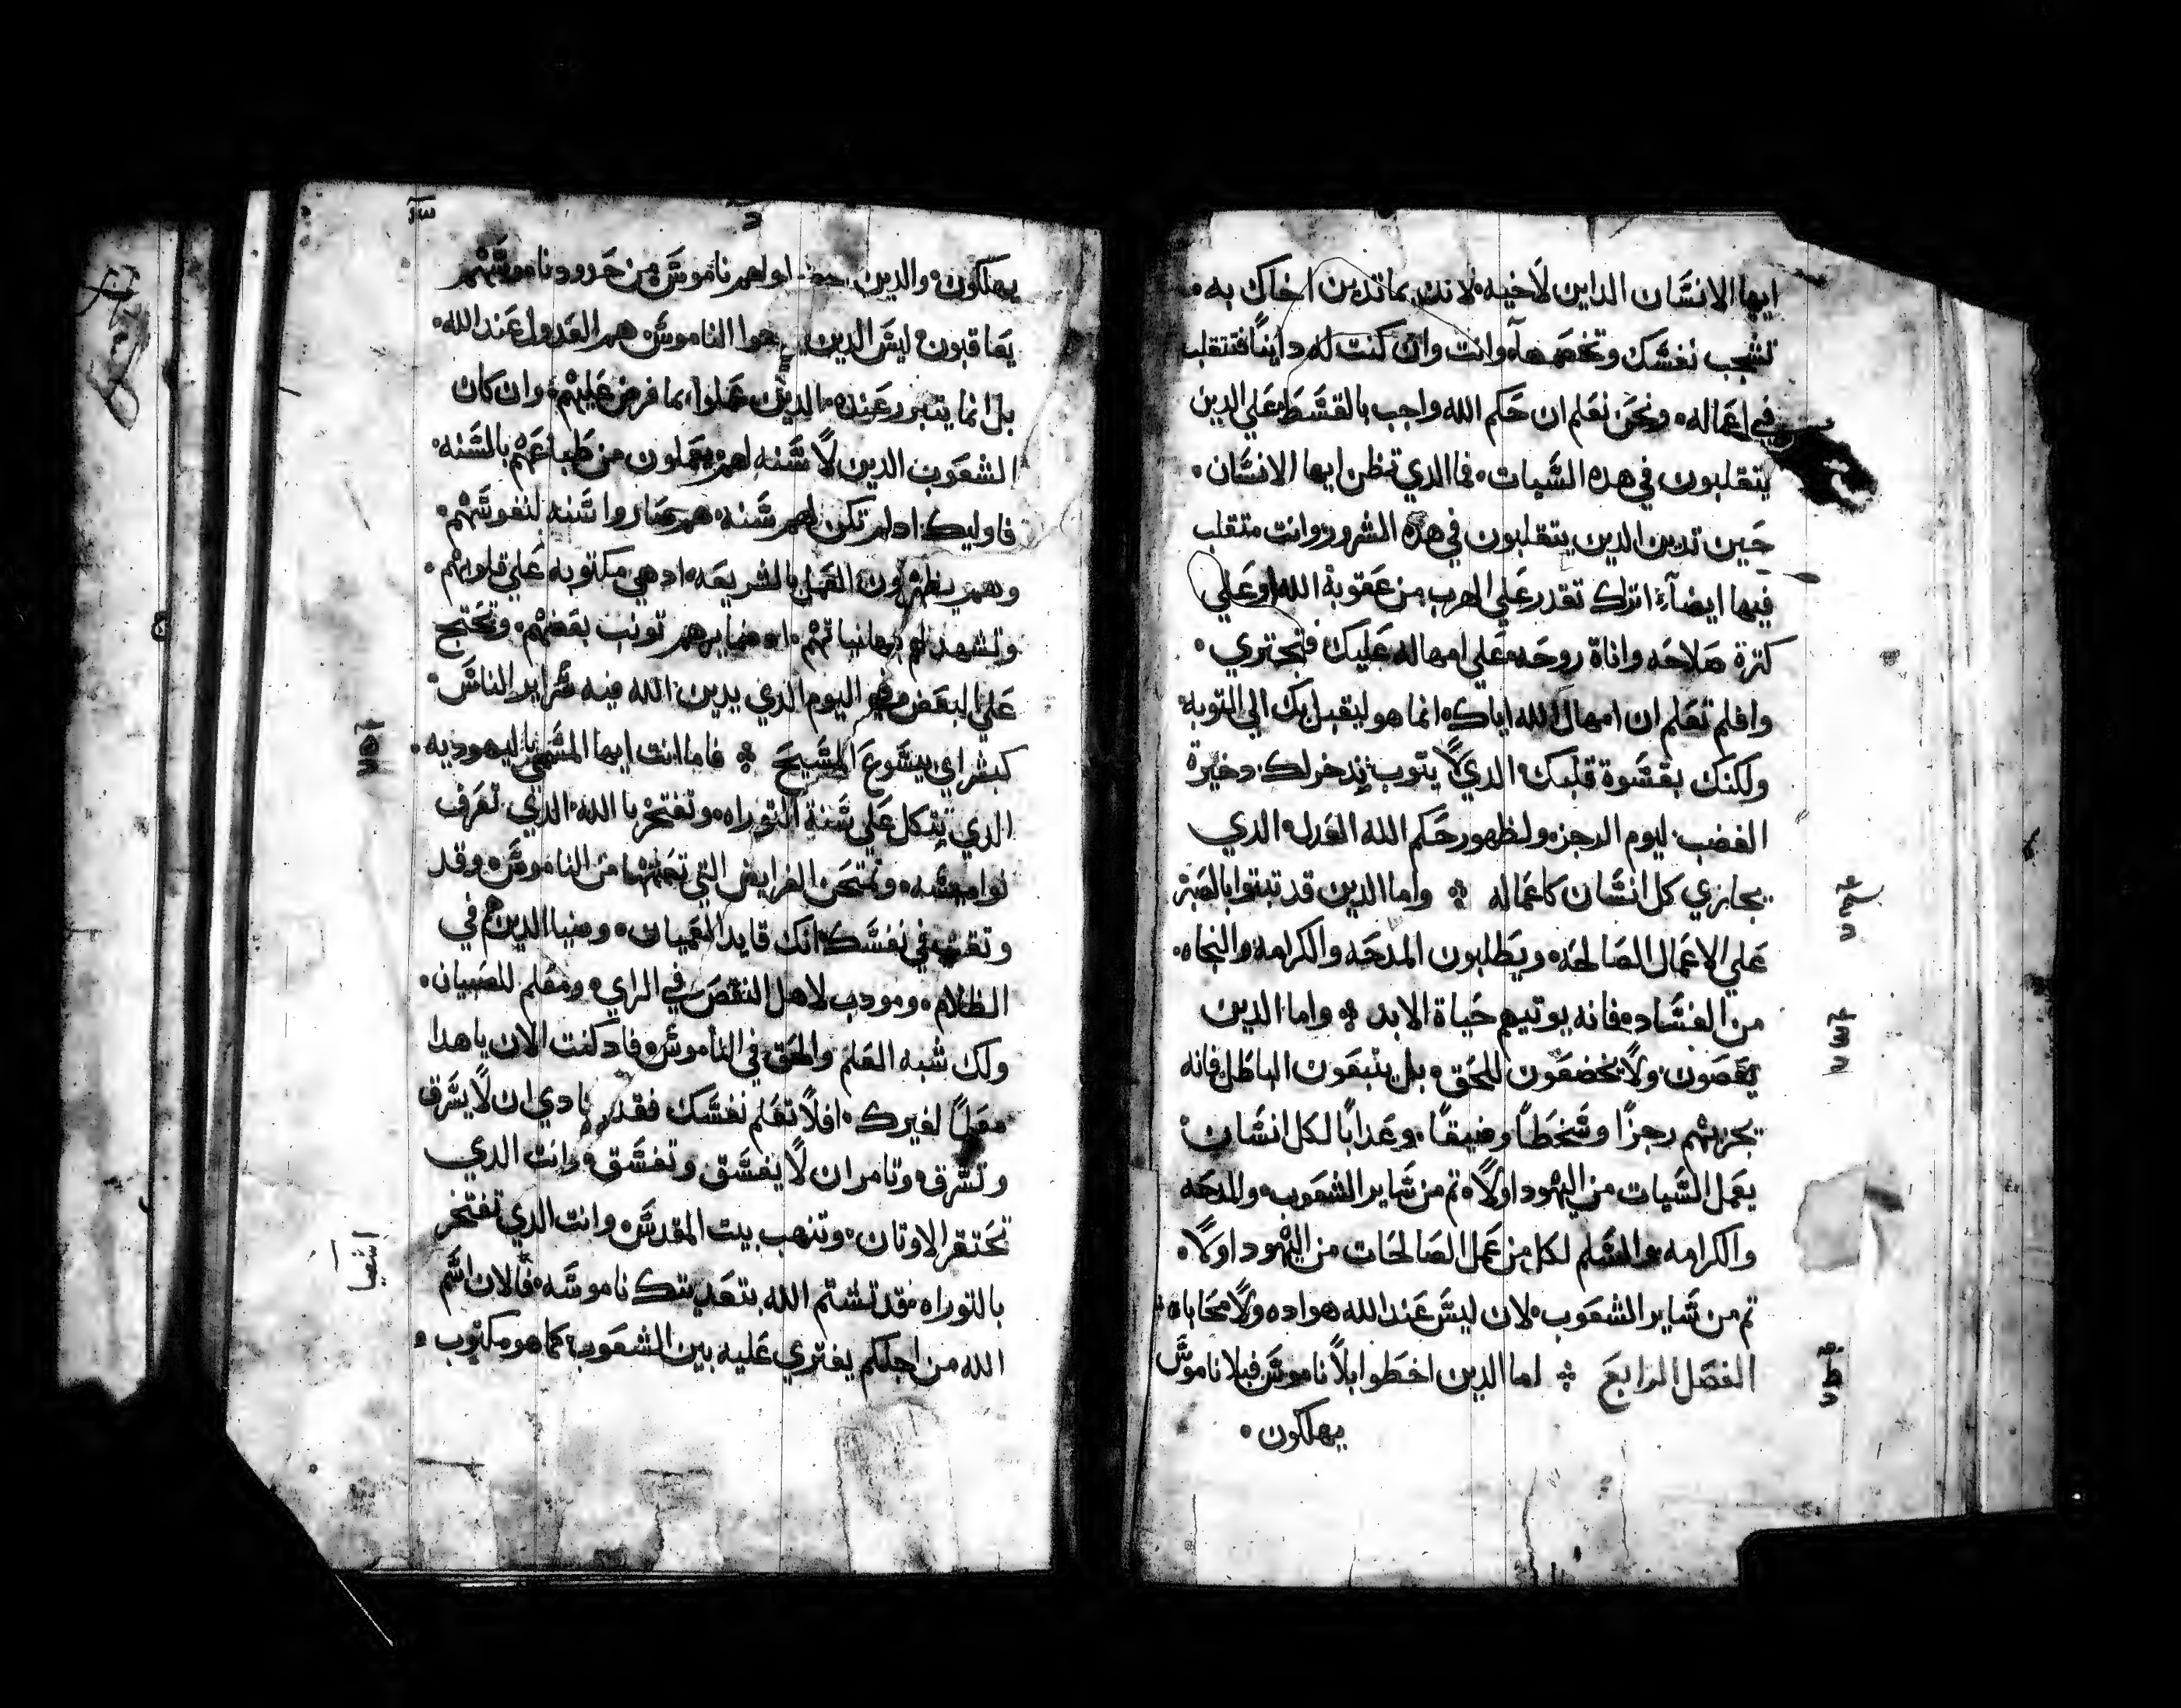 ايها الانسان الداين لاخيه لانك بما تدين اخاك به
تشجب نفسك وتخصمها وانت وان كنت له داينا فتتقلب
في اعماله ونحن نعلم ان حكم الله واجب بالقسط علي الدين
يتقلبون في هده السيات فما الدي تظن ايها الانسان
حين تدين الدين يتقلبون في هده الشرور وانت متقلب
فيها ايضا اتراك تقدر علي الهرب من عقوبة الله او علي
كترة صلاحه واناة روحه وعلي امهاله عليك فتجتري
وافلم تعلم ان امهال الله اياك انما هو ليقبل بك الي التوبه
ولكنك بقسوة قلبك الدي لا يتوب تدخر لك دخيرة
الغضب ليوم الرجز ولظهور حكم الله العدل الدي
يجازي كل انسان كاعماله واما الدين قد تبتوا بالصبر
علي الاعمال الصالحه ويطلبون المدحه والكرامه والنجاه
من الفساد فانه يوتيهم حياة الابد واما الدين
يعصون ولا يخضعون للحق بل يتبعون الباطل فانه
يجزيهم رجزا وسخطا وضيقا وعدابا لكل انسان
يعمل السيات من اليهود اولا تم من ساير الشعوب والمدحه
والكرامه والسلم لكل من عمل الصالحات من اليهود اولا
تم من ساير الشعوب لان ليس عند الله هواده ولا محاباه
الفصل الرابع اما الدين اخطوا بلا ناموس فبلا ناموس
يهلكون
يهلكون والدين اولهم ناموس من حدود ناموسهم
يعاقبون ليس الدين الناموس هم العدول عند الله
بل انما يتبرر عنده الدين عملوا بما فرض عليهم وان كان
الشعوب الدين لا سنه لهم يعملون من طباعهم بالسنه
فاوليك اد لم تكن لهم سنه هم صاروا سنه لنفوسهم
وهم يظهرون العمل بالشريعه اد هي مكتوبه علي قلوبهم
وتشهد لهم بها نياتهم اد ضمايرهم تونب بعضهم وتحتج
علي البعض في اليوم الدي يدين الله فيه سراير الناس
كبشراي بيسوع المسيح فاما انت ايها المسمي باليهوديه
الدي تتكل علي سنة التوراه وتفتخر بالله الدي تعرف
نواميسه وتمتحن الفرايض التي من الناموس وقد
وتقت في نفسك انك قايد العميان وضيا الدين هم في
الظلام ومودب لاهل النقص في الراي ومعلم للصبيان
ولك شبه العلم والحق في الناموس فاد كنت الان يا هدا
معلما لغيرك افلا تعلم نفسك فقد تنادي ان لا يسرق
وتسرق وتامر ان لا يفسق وتفسق وانت الدي
تحتقر الاوتان وتنهب بيت المقدس وانت الدي تفتخر
بالتوراه فقد تشتم الله بتعديتك ناموسه فالان اسم
الله من اجلكم يفتري عليه بين الشعوب كما هو مكتوب
اشعيا